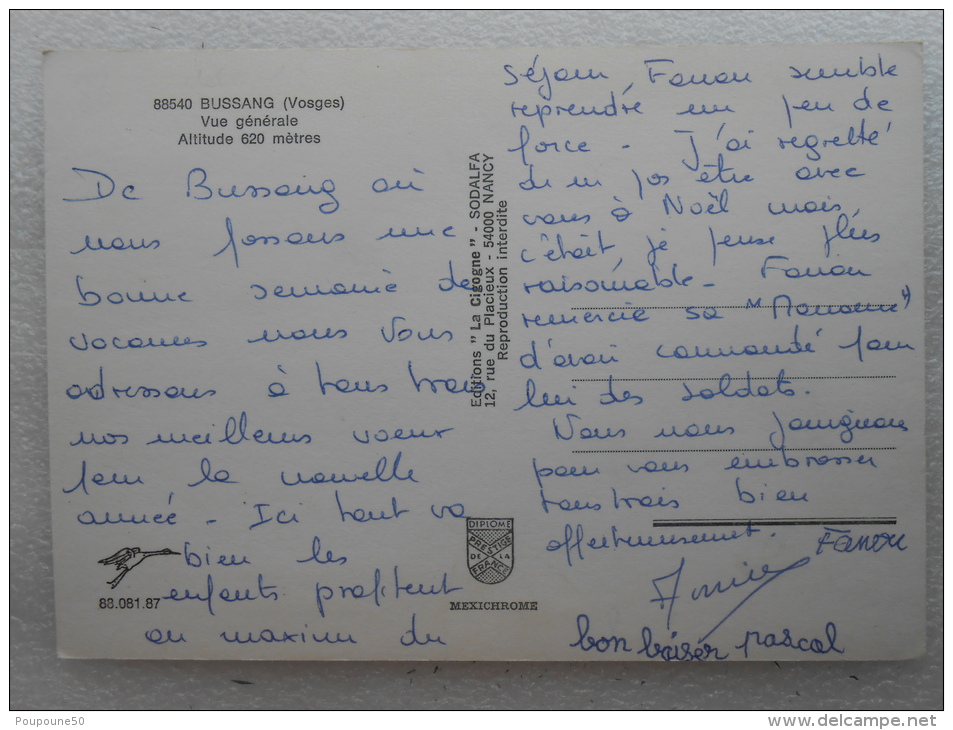 88540 BUSSANG (Vosges)
Vue générale
Altitude 620 mètres
De Bussang où
nous passons une
bonne semaine de
vacances nous vous
adressons à tous trois
nos meilleurs voeux
pour la nouvelle
année - Ici tout va
bien les
enfants profitent
au maximum du
88.081.87
Editions " La Cigogne " - SODALFA
12, rue du Placieux - 54000 NANCY
Reproduction interdite
DIPLOME
PRESTIGE
DE LA
FRANCE
MEXICHROME
séjour, Fanou semble
reprendre un peu de
force - J'ai regretté
de ne pas être avec
vous à Noël mais,
c'était, je pense plus
raisonnable - Fanou
remercie sa "
d'avoir commandé pour
lui des soldats.
Nous nous joignons
pour vous embrasser
tous trois bien
affectueusement. Fanou
bon baiser pascal
Poupoune50
www.delcampe.net